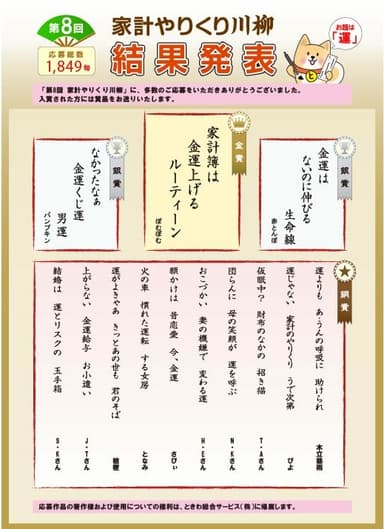 第8回
応募総数
1,849句
家計やりくり川柳
結果発表
お題は
「運」
「第8回 家計やりくり川柳」に、多数のご応募をいただきありがとうございました。
入賞された方には賞品をお送りいたします。
金賞
家計簿は
金運上げる
ルーティーン
ぽむぽむ
銀賞
金運は
ないのに伸びる
生命線
赤とんぼ
銀賞
なかったなぁ
金運くじ運
男運
パンプキン
銅賞
運よりも あ・うんの呼吸に 助けられ
木立慈雨
運じゃない 家計のやりくり うで次第
ぴよ
仮眠中? 財布のなかの 招き猫
T・Aさん
団らんに 母の笑顔が 運を呼ぶ
N・Kさん
おこづかい 妻の機嫌で 変わる運
H・Eさん
願かけは 昔恋愛 今、金運
さぴぃ
火の車 慣れた運転 する女房
となみ
運がよきゃあ きっとあの世も 君のそば
桔梗
上がらない 金運給与 お小遣い
J・Tさん
結婚は 運とリスクの 玉手箱
S・Kさん
応募作品の著作権および使用についての権利は、ときわ総合サービス(株)に帰属します。